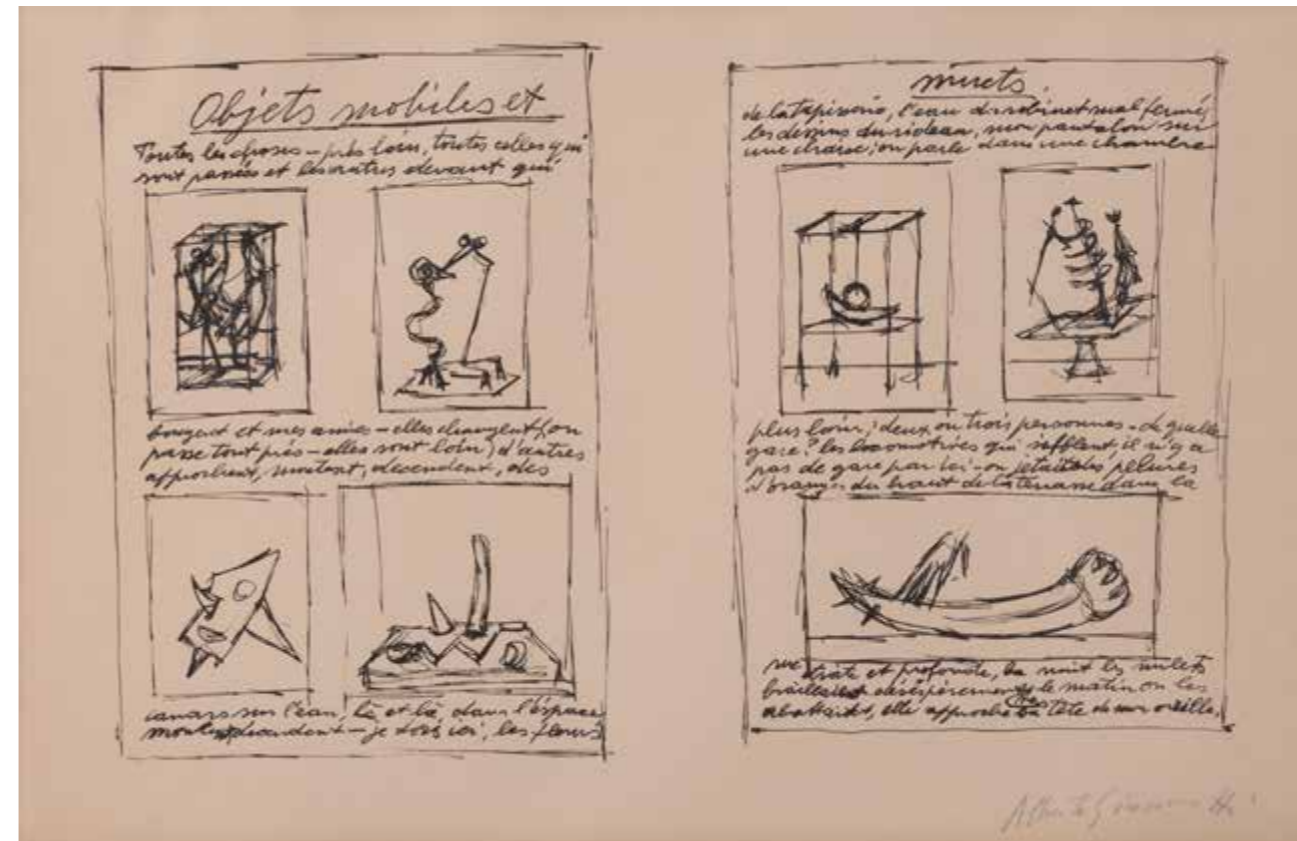 Objets mobiles et
Toutes les choses – près loin, toutes celles qui
sont passées et les autres devant qui
bougent et mes amies – elles changent (on
passe tout près – elles sont loin) d'autres
approchent, montent, decendent, des
canars sur l'eau, là et là, dans l'éspace
montent, decendent – je dors ici, les fleurs
muets.
de la tapisserie, l'eau du robinet mal fermé,
les dessins du rideau, mon pantalon sur
une chaise; on parle dans une chambre
plus loin; deux ou trois personnes – de quelle
gare? les locomotives qui sifflent, il n'y a
pas de gare par ici – on jetait des pelures
d'oranges du haut de la terrasse dans la
rue étroite et profonde, la nuit les mulets
braillaient désespéremment, le matin on les
abattait, elle approche tête de mon oreille,
Alberto Giacometti